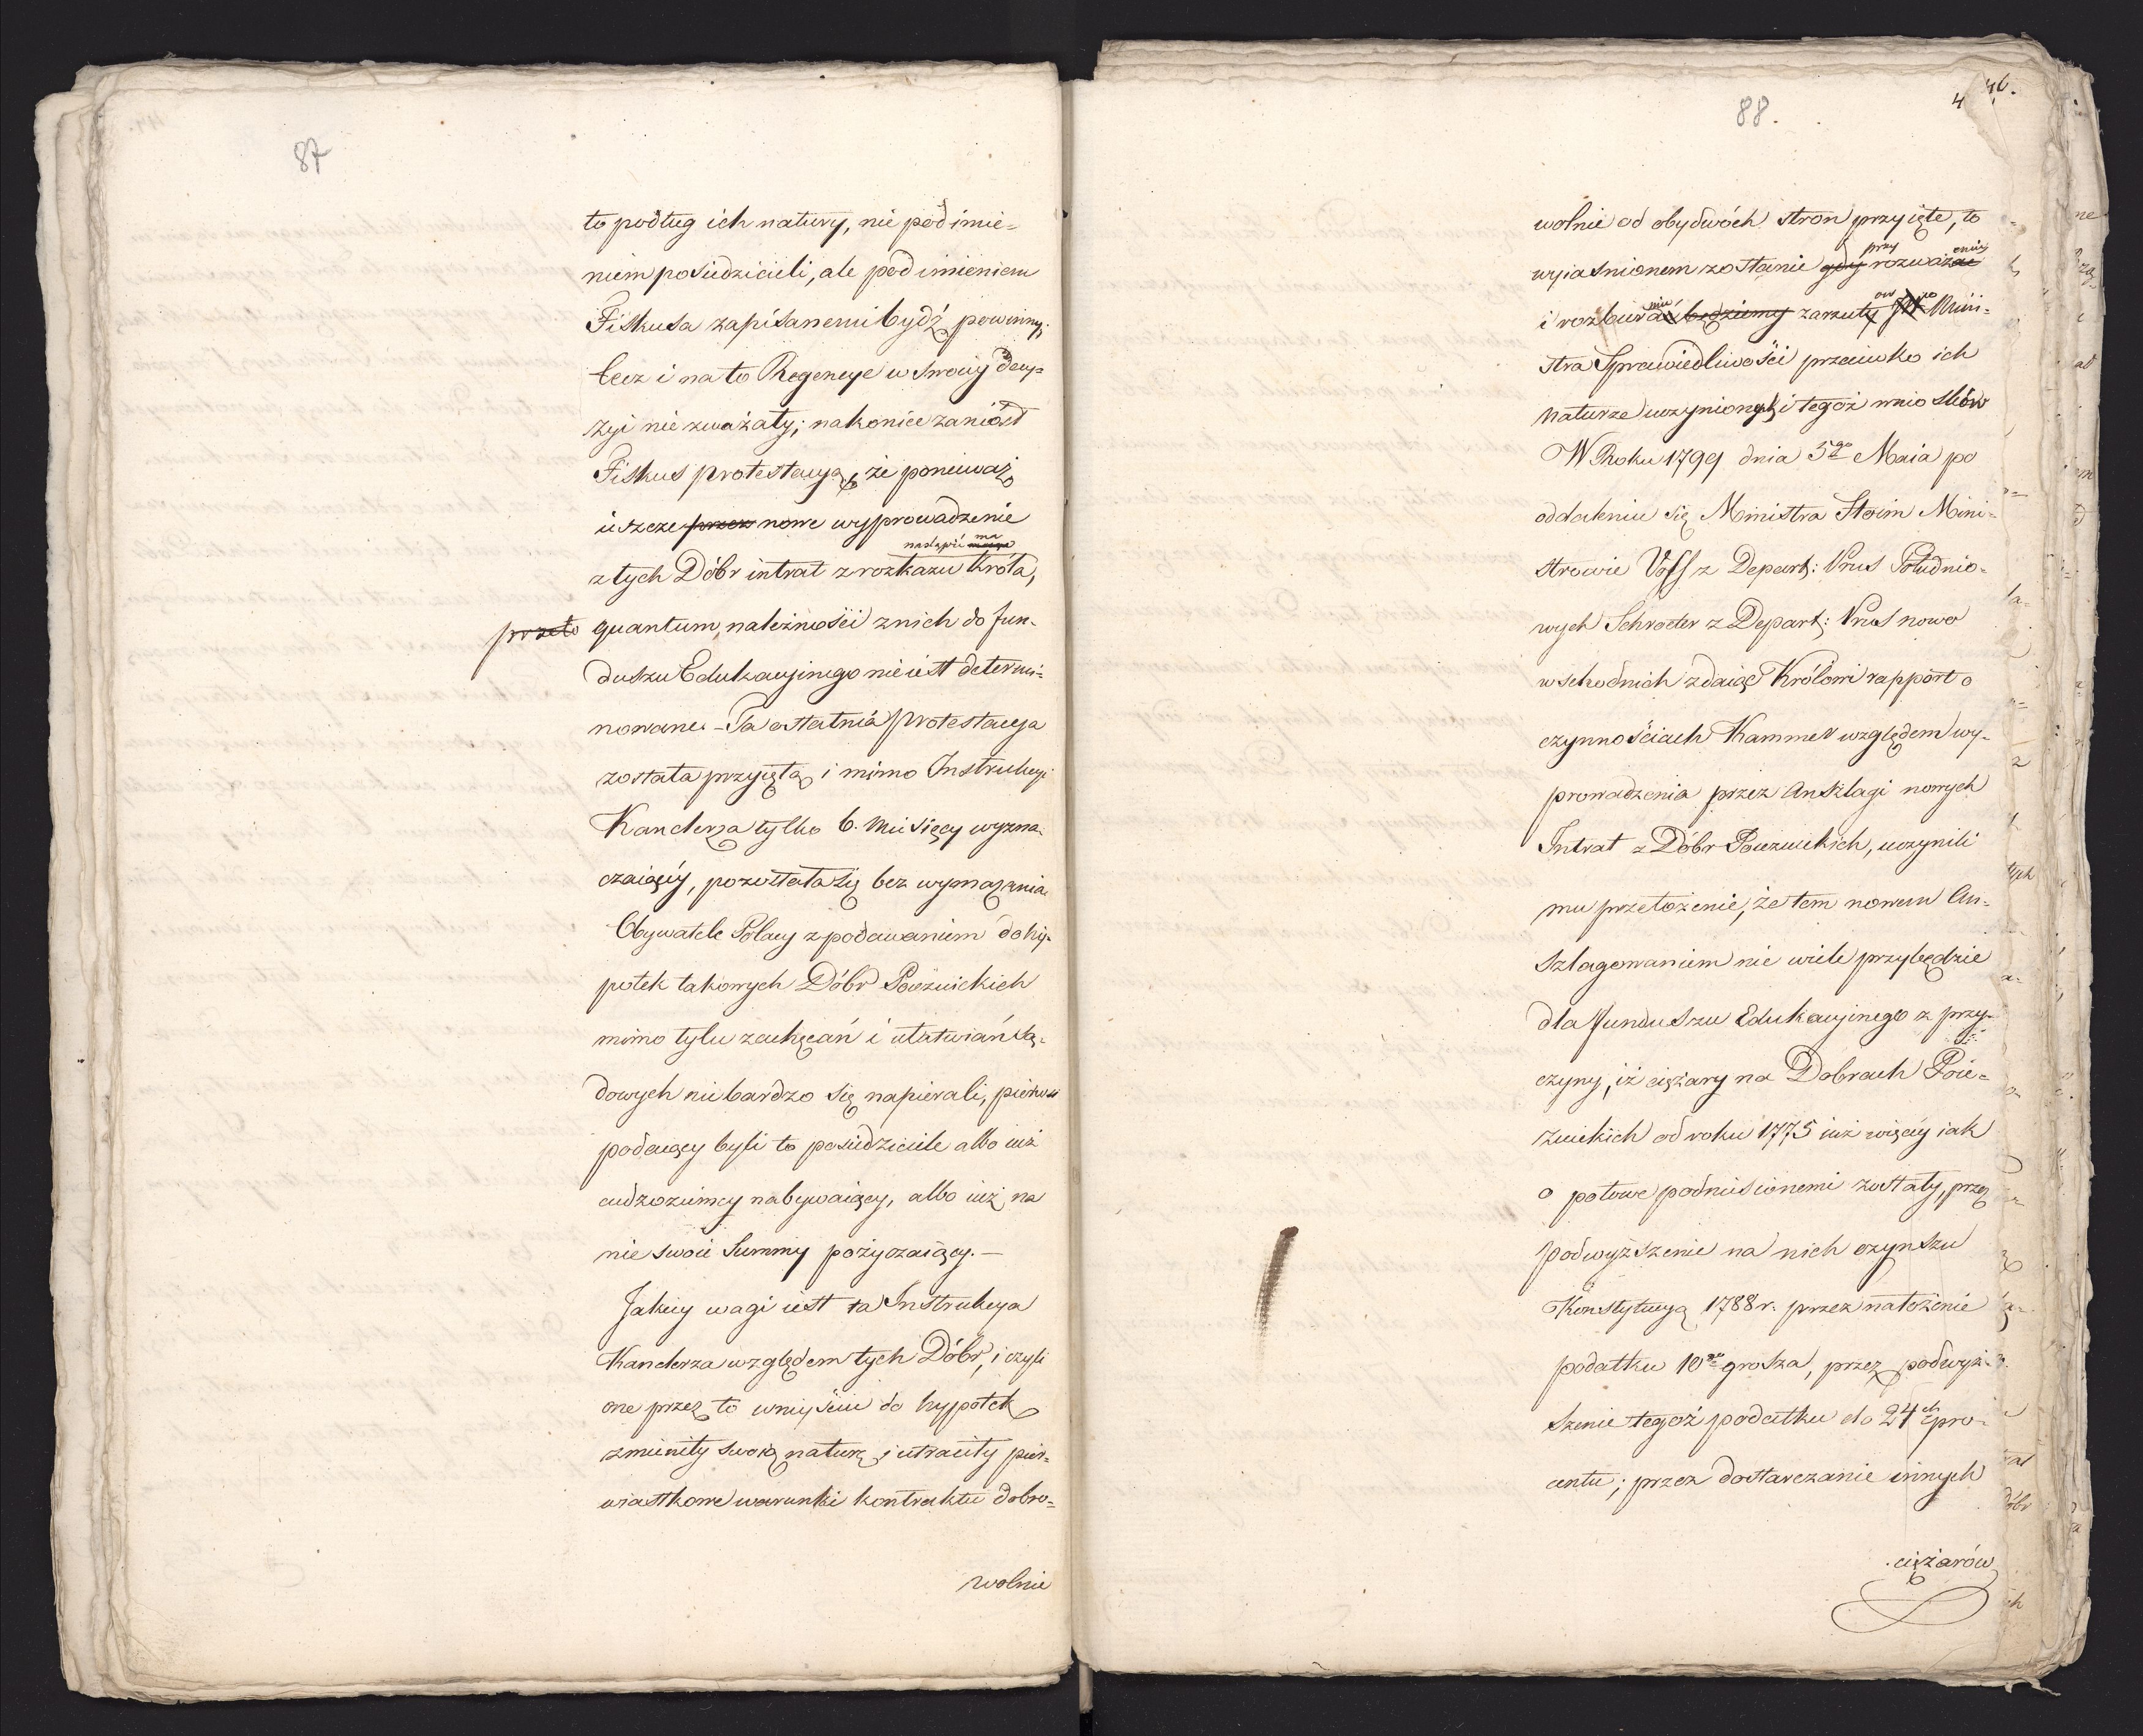 87
to podług ich natury, nie pod imie-
niem posiedzicieli, ale pod imieniem
Fiskusa zapisanemi bydź powinny;
lecz i na to Regencye w swoiey decy-
zyi nie zważały; nakoniec zaniósł
Fiskus protestacyą, że ponieważ
ieszcze przez nowe wyprowadzenie
nastąpić ma
z tych Dóbr intrat z rozkazu Króla,
przeto quantum należności z nich do fun-
duszu Edukacyinego nie iest determi-
nowane. - Ta ostatnia protestacya
została przyiętą i mimo Instrukcyi
Kanclerza tylko 6. Miesięcy wyzna-
czaiącey, pozostała się bez wymazania
Obywatele Polacy z podawaniem do hy-
potek takowych Dóbr Poiezuickich
mimo tylu zachęcań i ułatwiań Są-
dowych nie bardzo się napierali, pierwsi
podaiący byli to posiedziciele albo iuż
cudzoziemcy nabywaiący, albo iuż na
nie swoie Summy pożyczaiący. —
Jakiey wagi iest ta Instrukcya
Kanclerza względem tych Dóbr, i czyli
one przez to wniyście do hypotek
zmieniły swoią naturę i utraciły pier-
wiastkowe warunki kontraktu dobro=
wolnie
88.
46.
wolnie od obydwóch stron przyięte, to
przy eniu
wyiasnionem zostanie gdy rozważać
niu ów go
i rozbierać będziemy zarzuty Mini-
stra Sprawiedliwości przeciwko ich
naturze uczynionych i tegoż wniosków
W Roku 1799 dnia 5go Maia po
oddaleniu się Ministra Hoim Mini-
strowie Voss z Depart: Prus Południo-
wych Schroeter z Depart: Prus nowo
wschodnich zdaiąc Królowi rapport o
czynnościach Kammer względem wy-
prowadzenia przez Anszlagi nowych
Intrat z Dóbr Poiezuickich, uczynili
mu przełożenie, że tem nowem An-
szlagowaniem nie wiele przybędzie
dla funduszu Edukacyinego z przy-
czyny, iż ciężary na Dobrach Poie-
zuickich od roku 1775 iuż więcey iak
o połowe podniesionemi zostały, przez
podwyższenie na nich czynszu
Konstytucyą 1788 r. przez nałożenie
podatku 10go grosza, przez podwyż-
szenie tegoż podatku do 24ch pro-
centu; przez dostarczanie innych
ciężarów